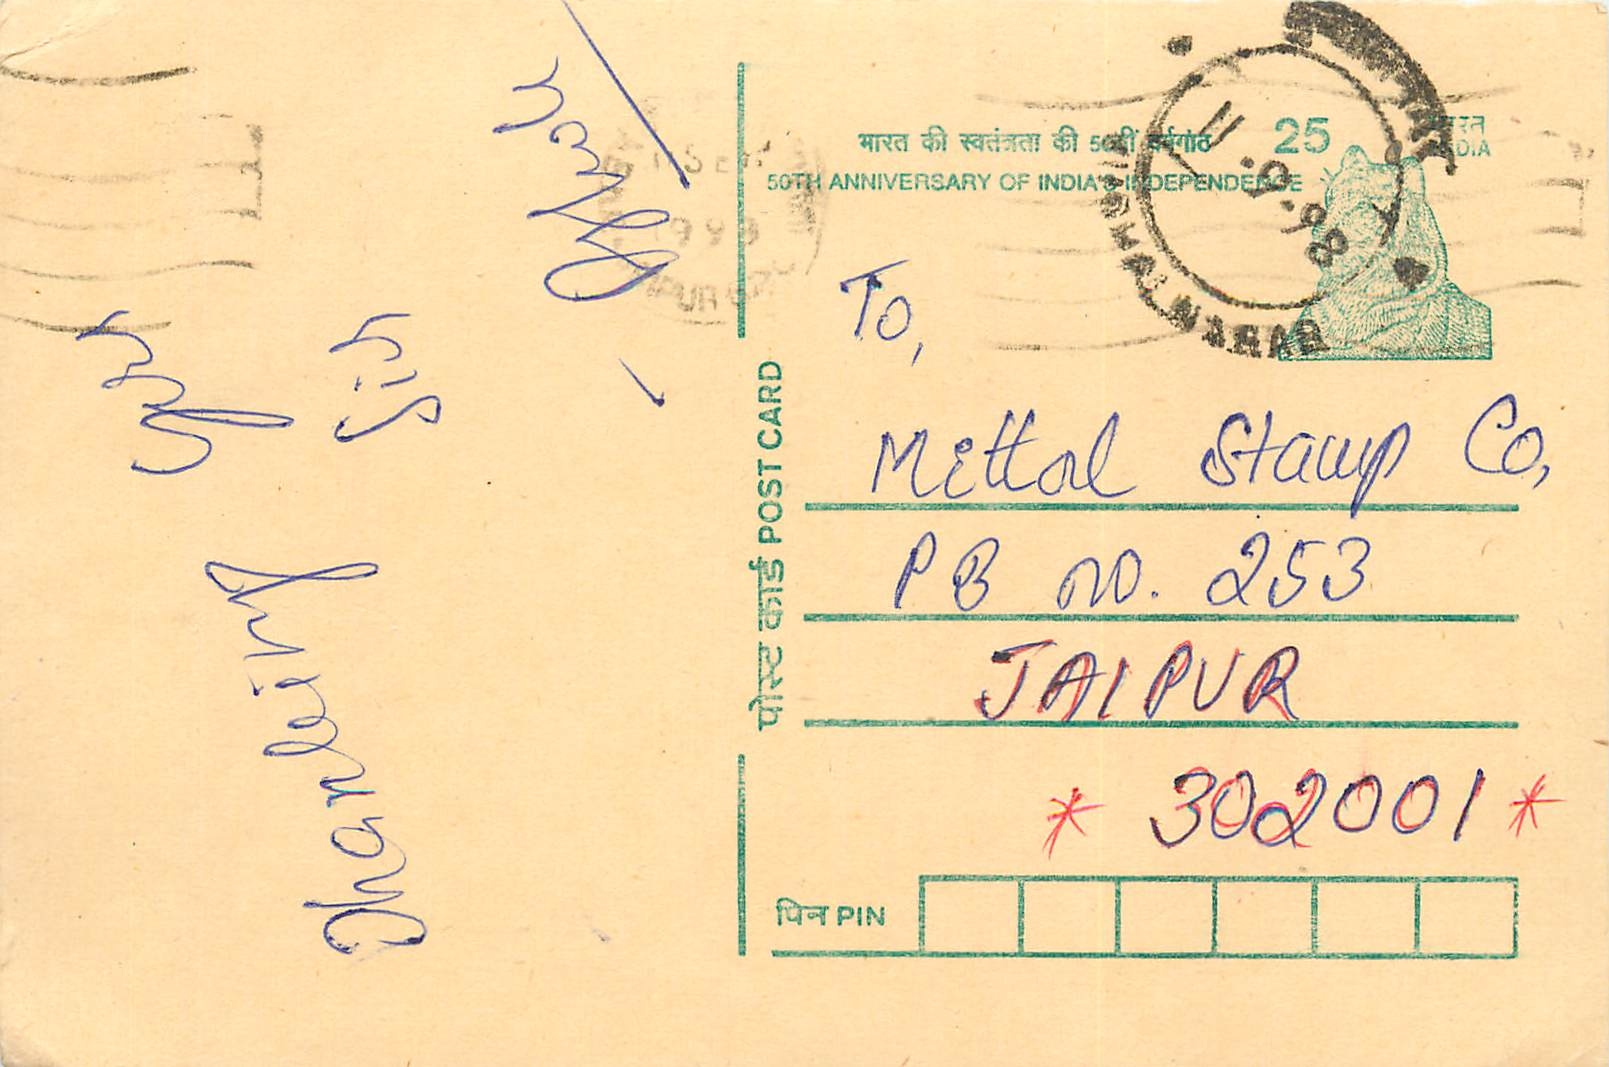 भारत की स्वतंत्रता की 50वीं वर्षगांठ
50TH ANNIVERSARY OF INDIA'S INDEPENDENCE
25
भारत
INDIA
11.9.98
11 SEP
1998
To,
Mittal Stamp Co,
PB no. 253
JAIPUR
* 302001 *
पिन PIN
पोस्ट कार्ड POST CARD
Thanking you
Sir